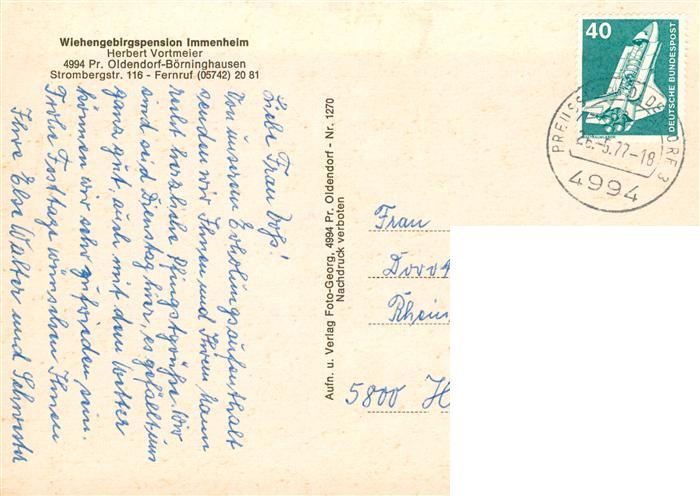 Wiehengebirgspension Immenheim
Herbert Vortmeier
4994 Pr. Oldendorf-Börninghausen
Strombergstr. 116 - Fernruf (05742) 20 81
Liebe Frau Voß!
Von unserem Erholungsaufenthalt
senden wir Ihnen und Ihrem Mann
recht herzliche Pfingstgrüße. Wir
sind seit Dienstag hier, es gefällt uns
ganz gut, auch mit dem Wetter
können wir sehr zufrieden sein.
Frohe Festtage wünschen Ihnen
Ihre Else Walter und Schwester
Aufn. u. Verlag Foto-Georg, 4994 Pr. Oldendorf - Nr. 1270
Nachdruck verboten
40
DEUTSCHE BUNDESPOST
PREUSS OLDENDORF 3
26.-5.77-18
4994
Frau
Doro
Rhein
5800 H